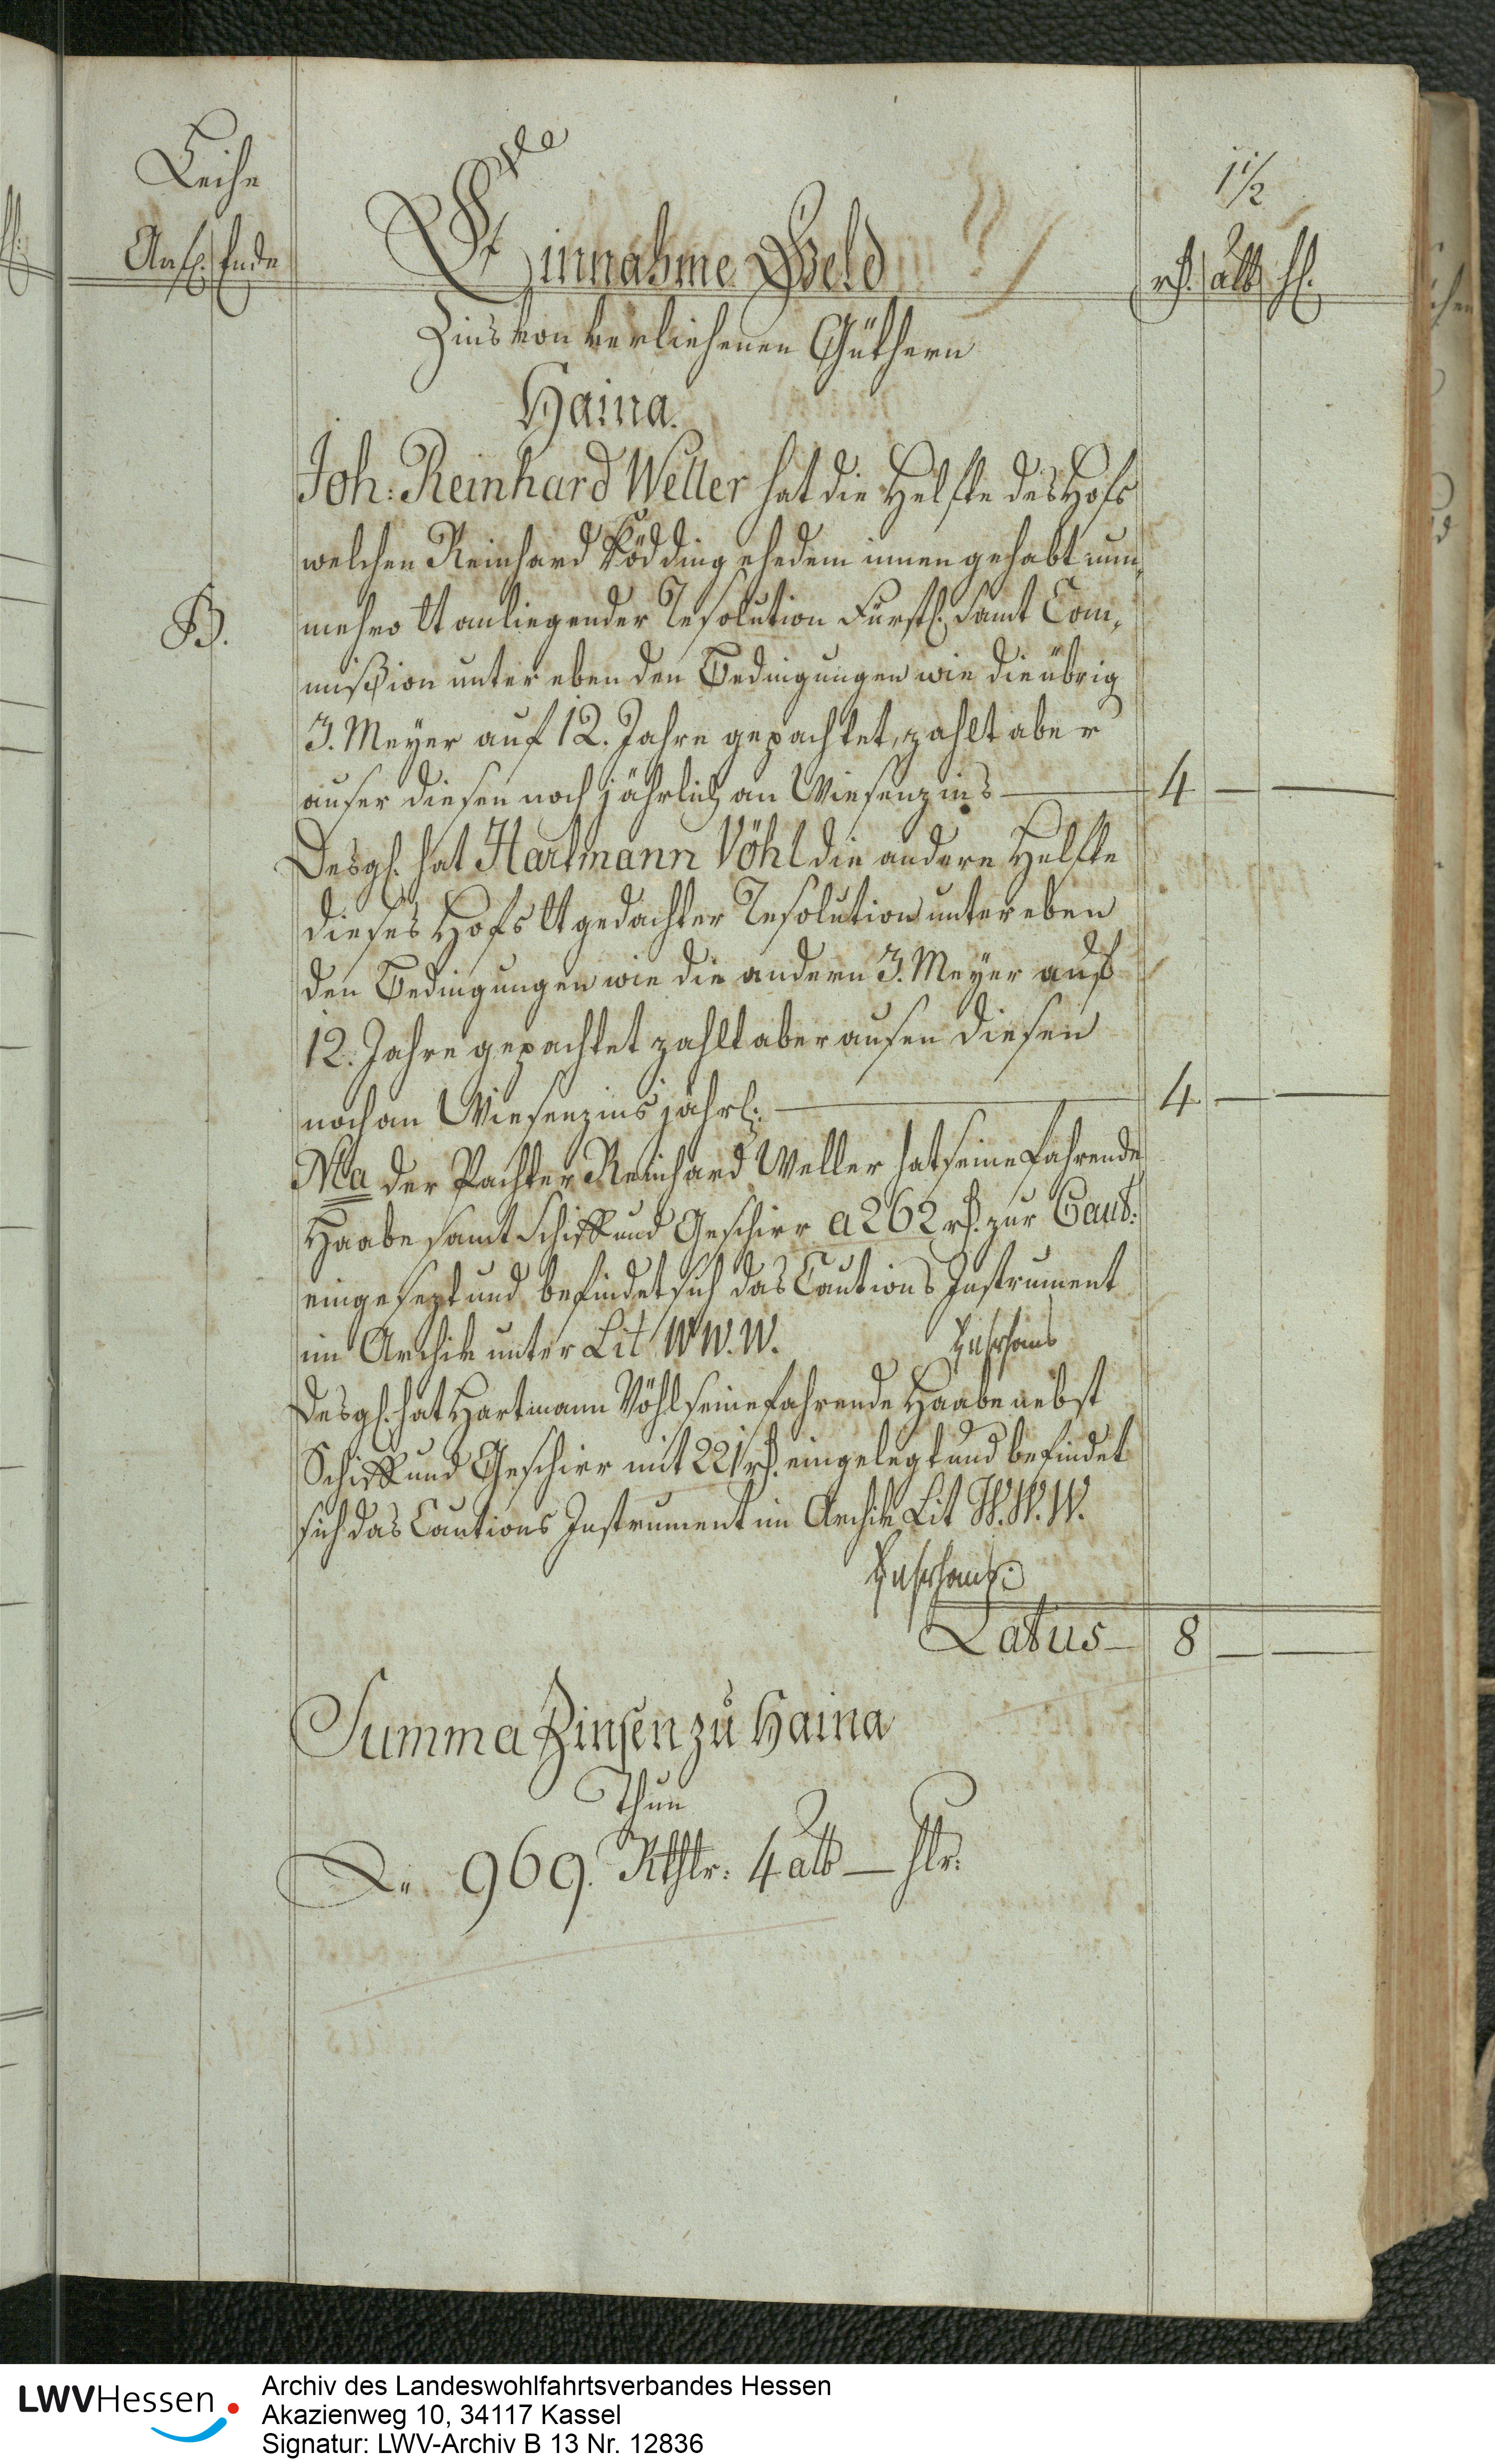 Leihe
Anf. Ende
Einnahme Geld
11/2
rh. alb hl.
Zins von verliehenen Güthern
Haina.
Joh: Reinhard Weller hat die Helfte des Hofs
welchen Reinhard Ködding ehedem innen gehabt nun,
B.
mehro lt anliegender Resolution Fürstl. Samt Com,
mißion unter eben den Bedingungen wie die übrig
3. Meyer auf 12. Jahre gepachtet, zahlt aber
auser diesen noch jährlich an Wiesenzins — 4 — —
Desgl. hat Hartmann Vöhl die andere Helfte
dieses Hofs lt gedachter Resolution unter eben
den Bedingungen wie die andern 3. Meyer auf
12. Jahre gepachtet zahlt aber ausen diesen
noch an Wiesenzins jährl: — 4 — —
Na der Pachter Reinhard Weller hat seine fahrende
Haabe samt Schiff und Geschirr a 262 rh. zur Caut:
eingesezt und befindet sich das Cautions Instrument
im Archiv unter Lit W. W. W.
Desgl. hat Hartmann Vöhl seine fahrende Haabe nebst
Schiff und Geschirr mit 221 rh. eingelegt und befindet
sich das Cautions Instrument im Archiv Lit W. W. W.
Latus — 8 — —
Summa Zinsen zu Haina
Thun
969. Rthlr: 4 alb — hlr:
LWVHessen
Archiv des Landeswohlfahrtsverbandes Hessen
Akazienweg 10, 34117 Kassel
Signatur: LWV-Archiv B 13 Nr. 12836